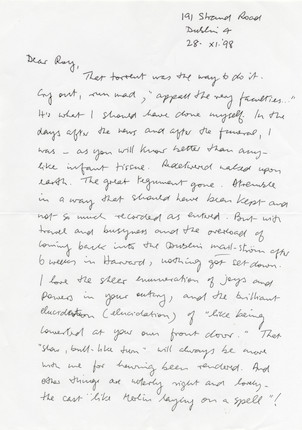 191 Strand Road
Dublin 4
28. XI. '98
Dear Roy,
That torrent was the way to do it.
Cry out, run mad, "appall the very faculties..."
It's what I should have done myself. In the
days after the news and after the funeral, I
was - as you will know better than any -
like infant tissue. Redelivered naked upon
earth. The great pigment gone. Atremble
in a way that should have been kept and
not so much recorded as entered. But with
travel and busyness and the overload of
coming back into the Dublin mail-storm after
6 weeks in Harvard, nothing got set down.
I love the sheer enumeration of joys and
powers in your outcry, and the brilliant
elucidation (elucidation) of "like being
converted at your own front door." That
"slow, bull-like turn" will always be more
with me for having been rendered. And
other things are utterly right and lovely -
the cast "like Merlin laying on a spell"!